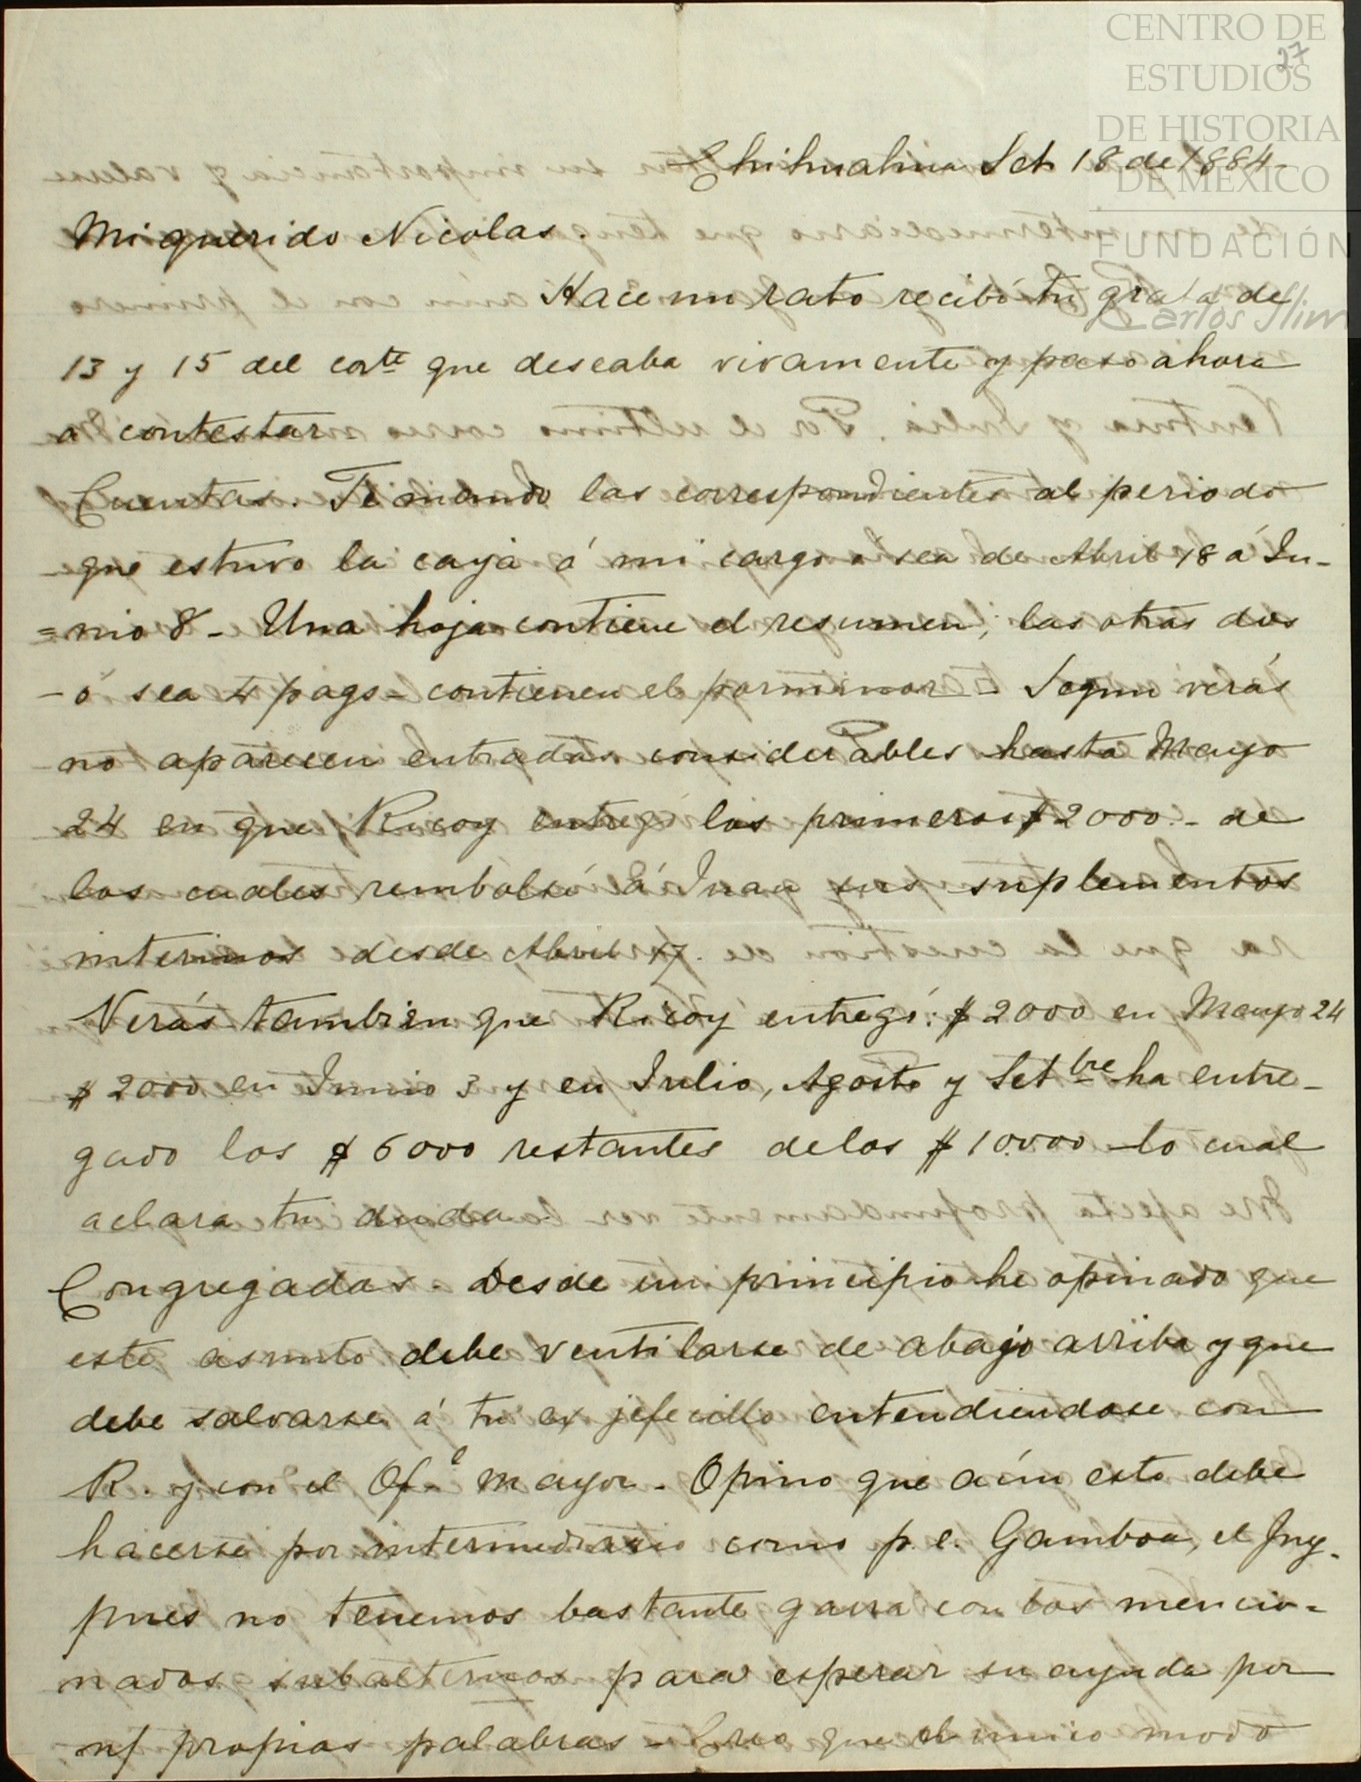 CENTRO DE
ESTUDIOS
DE HISTORIA
DE MÉXICO
FUNDACIÓN
Carlos Slim
27
Chihuahua Set 18 de 1884-
Mi querido Nicolas.
Hace un rato recibí tu grata de
13 y 15 del corte que deseaba vivamente y paso ahora
a contestar
Cuentas. Te mando las correspondientes al periodo
que estuvo la caja á mi cargo o sea de Abril 18 á Ju-
=nio 8 - Una hoja contiene el resumen; las otras dos
- ó sea 4 pags - contienen el pormenor - Segun verás
no aparecen entradas considerables hasta Mayo
24 en que Ricoy entregó los primeros $2000.- de
los cuales rembolsó á Juan sus suplementos
interinos desde Abril 17.
Verás tambien que Ricoy entregó: $2000 en Mayo 24
$2000 en Junio 3 y en Julio, Agosto y Setbre ha entre-
gado los $6000 restantes de los $10.000 - lo cual
aclara tu duda
Congregadas - Desde un principio he opinado que
este asunto debe ventilarse de abajo arriba y que
debe salvarse á tu ex jefecillo entendiendose con
R. y con el Ofl mayor - Opino que aún esto debe
hacerse por intermediario como p. e. Gamboa, el Ing.
pues no tenemos bastante garra con los mencio=
nados subalternos para esperar su ayuda por
ns propias palabras - Creo que el unico modo